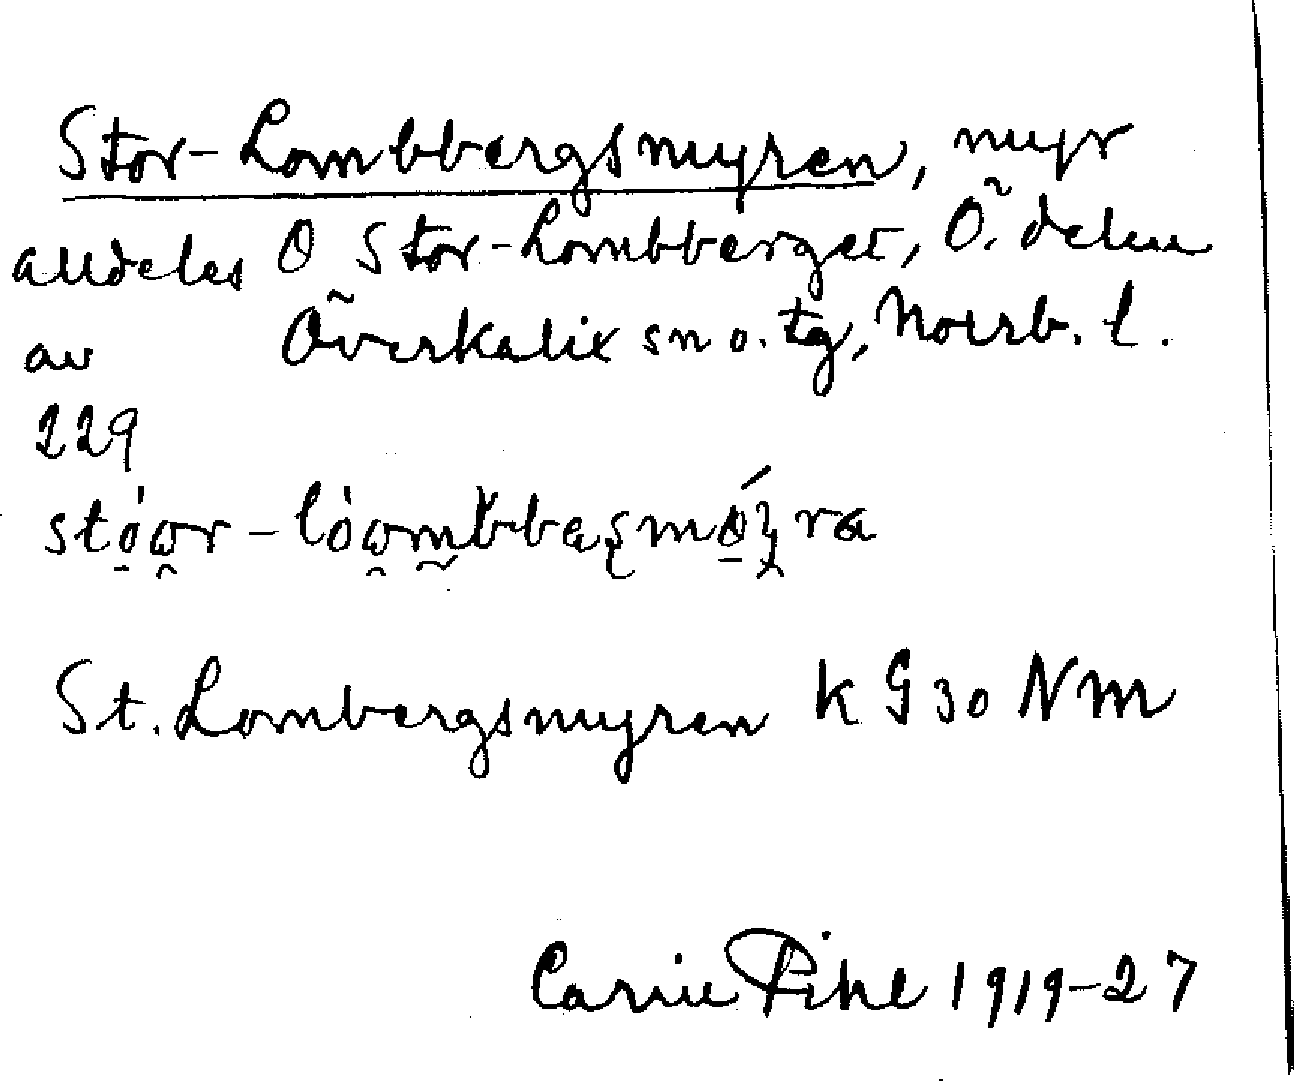 Stor-Lombbergsmyren, myr
alldeles O Stor-Lombberget, Ö. delen
av Överkalix sn o. tg, Norrb. l.
229
stó̱ω̯r - lóω̯mb̆bæʂmǿ̱ʒ̯ra
St. Lombergsmyren K G 30 NM
Carin Pihl 1919-27